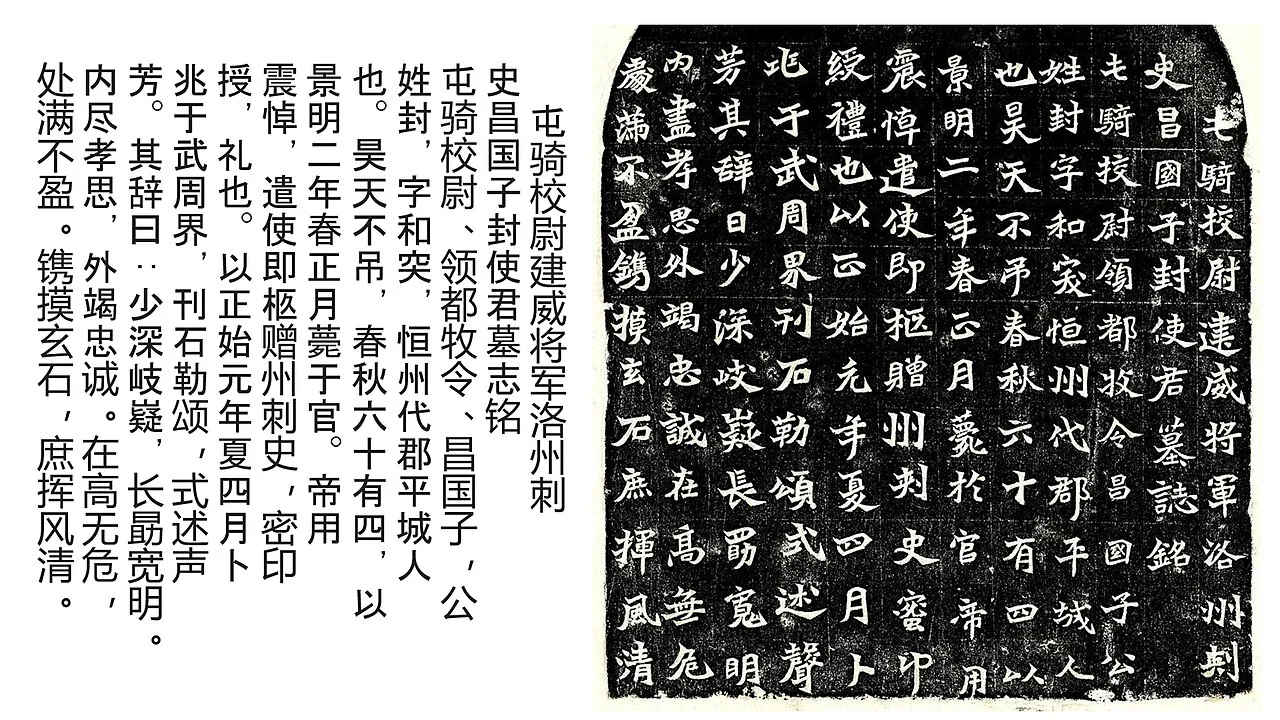 屯騎校尉建威將軍洛州刺
史昌國子封使君墓誌銘
屯騎校尉領都牧令昌國子公
姓封字和突恒州代郡平城人
也昊天不吊春秋六十有四以
景明二年春正月薨於官帝用
震悼遣使即柩贈州刺史蜜印
綬禮也以正始元年夏四月卜
兆于武周界刊石勒頌式述聲
芳其辭曰少深岐嶷長勗寬明
内盡孝思外竭忠誠在高無危
處滿不盈鐫摸玄石庶揮風清
屯骑校尉建威将军洛州刺
史昌国子封使君墓志铭
屯骑校尉、领都牧令、昌国子，公
姓封，字和突，恒州代郡平城人
也。昊天不吊，春秋六十有四，以
景明二年春正月薨于官。帝用
震悼，遣使即柩赠州刺史，密印
授，礼也。以正始元年夏四月卜
兆于武周界，刊石勒颂，式述声
芳。其辞曰：少深岐嶷，长勗宽明。
内尽孝思，外竭忠诚。在高无危，
处满不盈。镌摸玄石，庶挥风清。